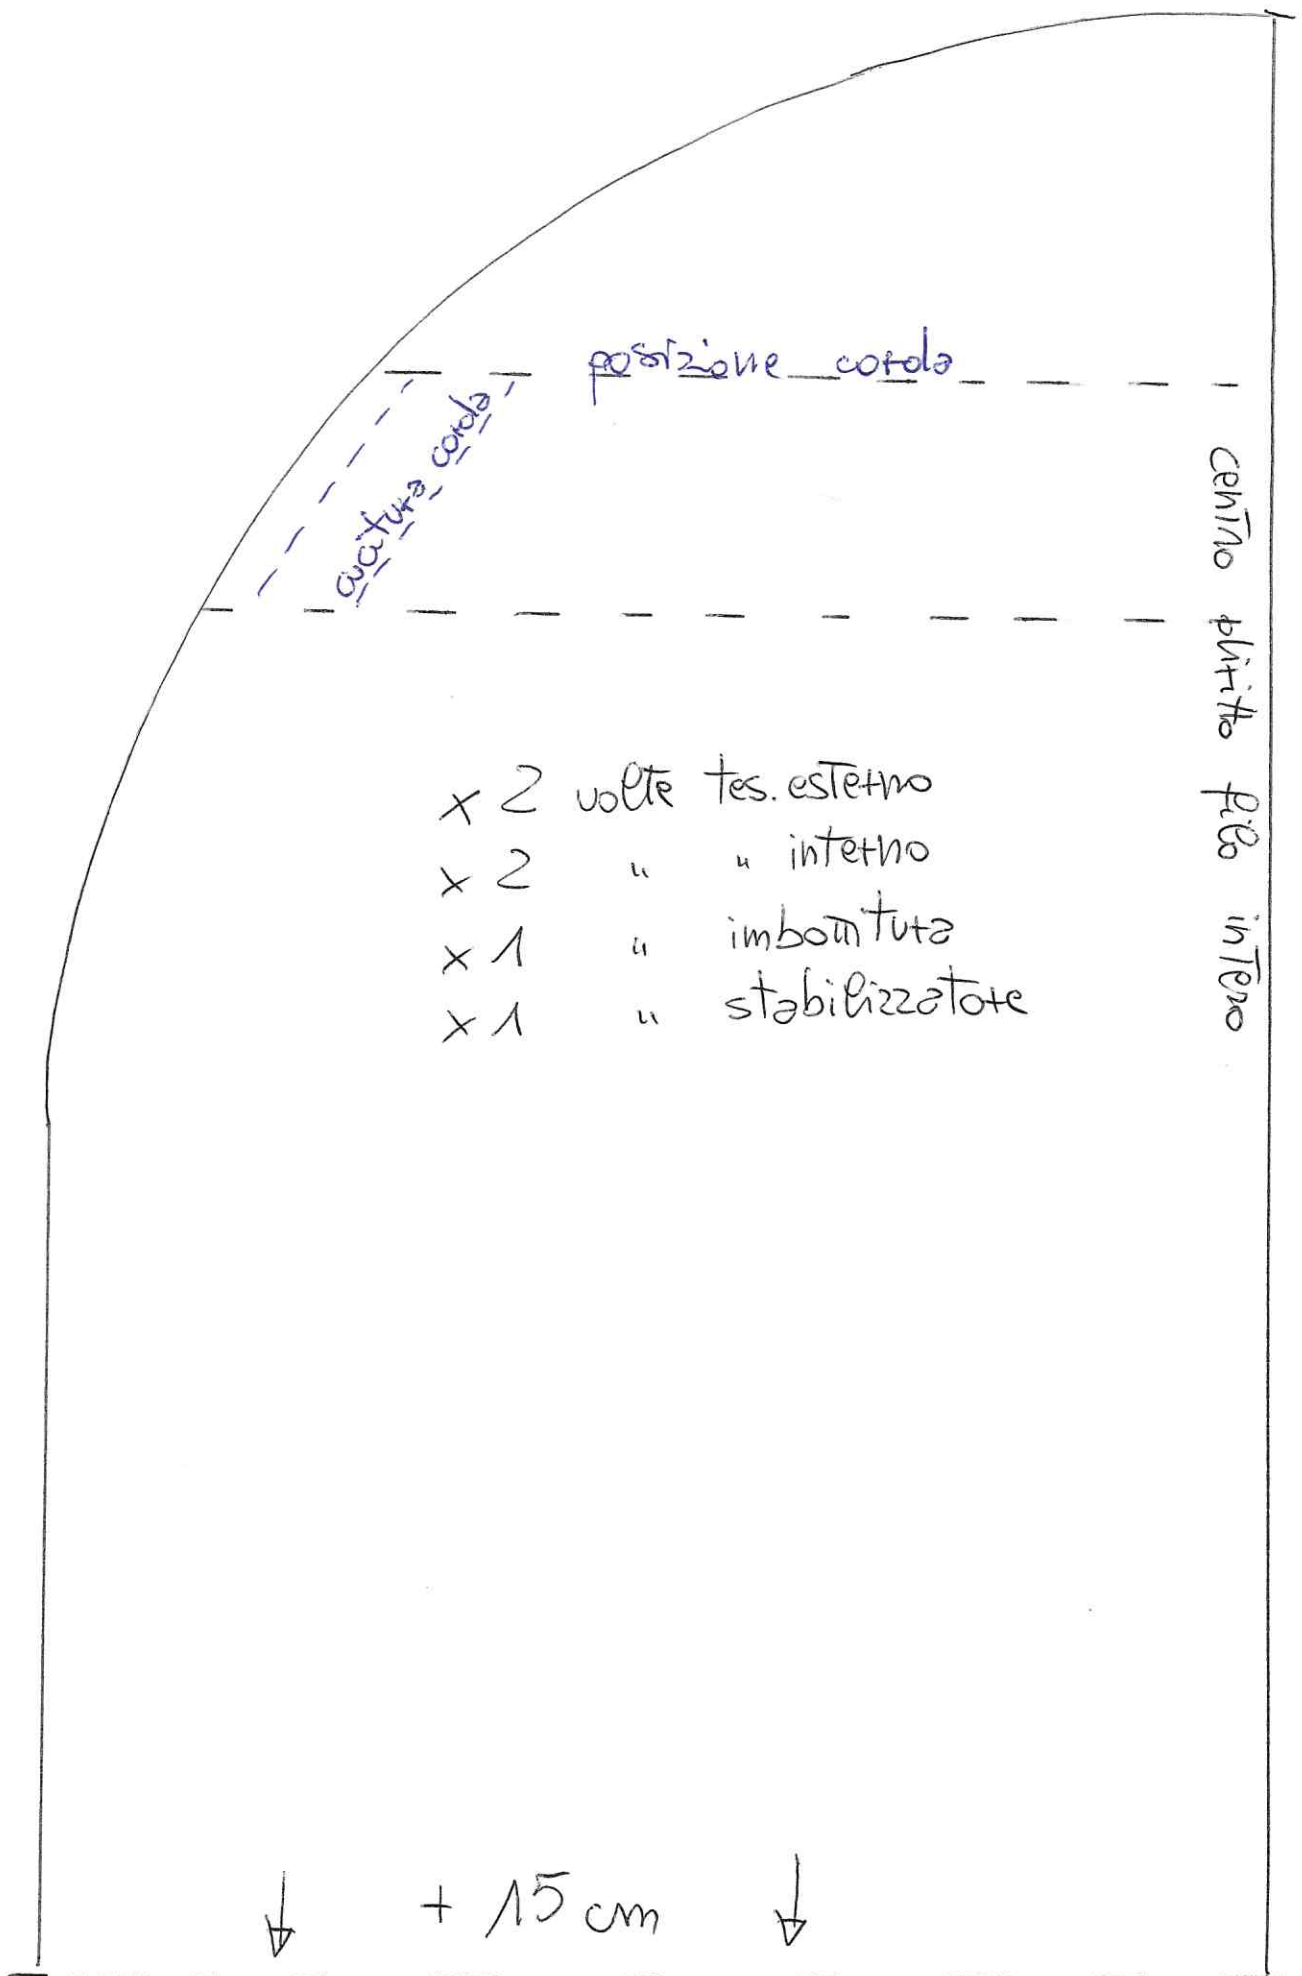 posizione corda
cucitura corda
centro diritto filo intero
x 2 volte tes. esterno
x 2 " " interno
x 1 " imbottitura
x 1 " stabilizzatore
+ 15 cm